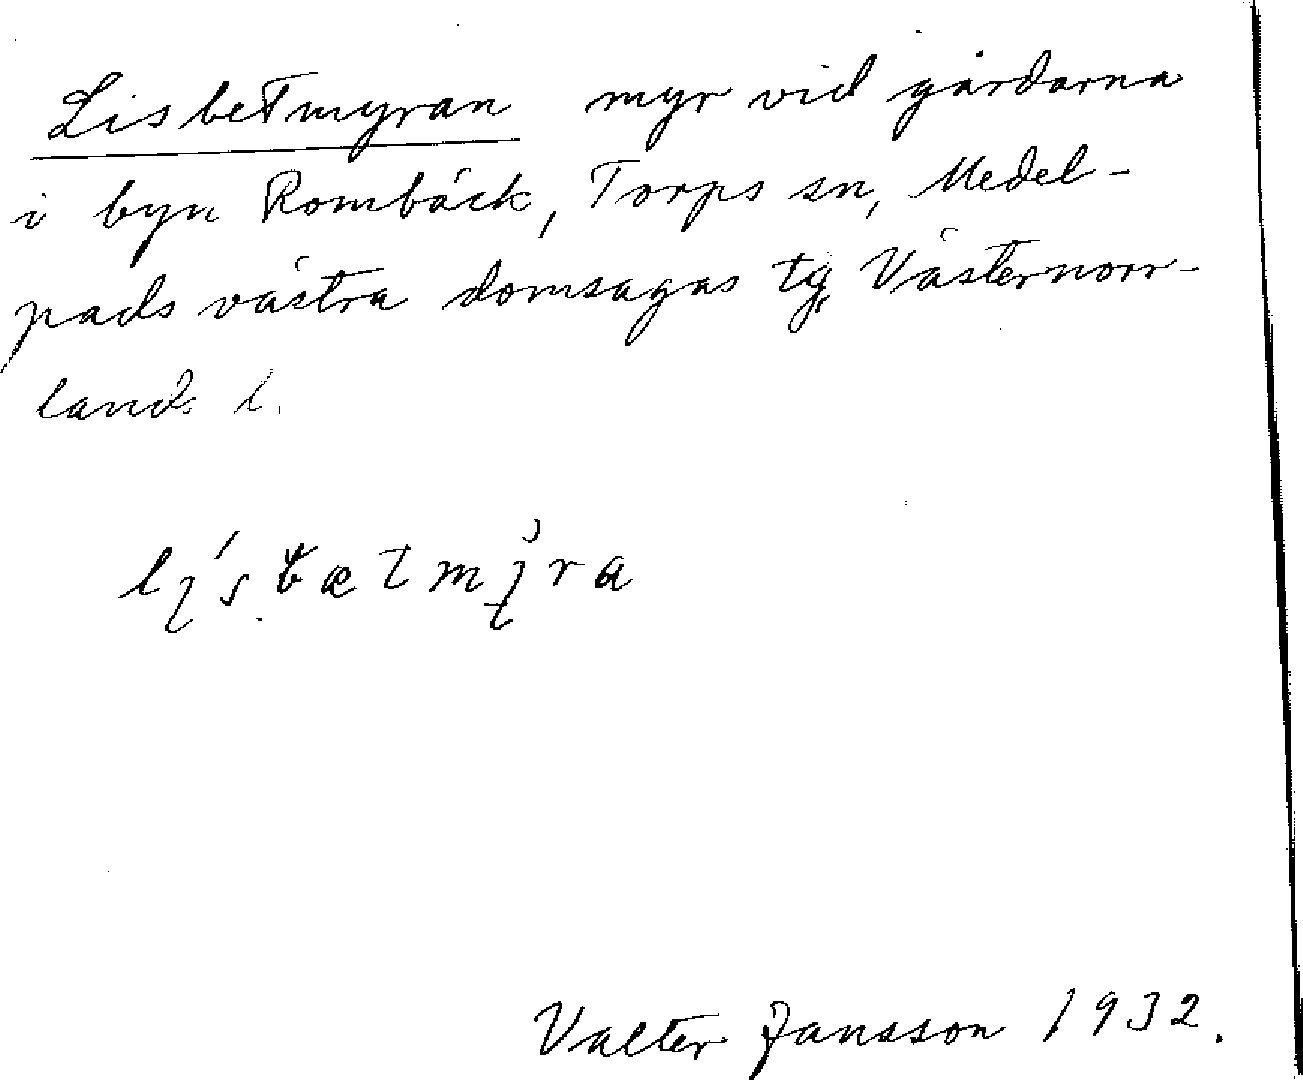 Lisbetmyran myr vid gårdarna
i byn Rombäck, Torps sn, Medel-
pads västra domsagas tg, Västernorr-
lands l.
Valter Jansson 1932.